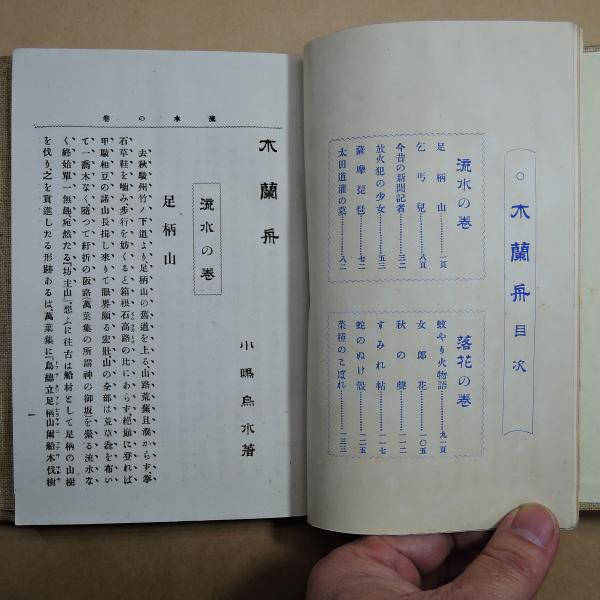 ○木蘭舟目次
流水の巻
足柄山……一頁
乞丐兒……八頁
今昔の新聞記者……三二
放火犯の少女……五三
薩摩琵琶……七二
太田道灌の墓……八二
落花の巻
蚊やり火物語……九一頁
女郎花……一〇五
秋の聲……一一二
すみれ帖……一一七
蛇のぬけ殻……一二五
菜種のこぼれ……一三三
流水の巻
木蘭舟
小嶋烏水著
流水の巻
足柄山
去秋駿州竹ノ下道より、足柄山の舊道を上る、山路荒蕪且湊からず、拳
石草鞋を嚙み、歩行を妨くると箱根石高路の比にあらす、絶巓に登れば
甲駿相豆の諸山長揖し來りて眼界頗る宏壯、山の全部は荒草蟲を布い
て一喬木なく、隨つて紆折の阪路(萬葉集の所謂神の御坂)を縈る流水な
く、終始單一無趣、宛然たる『坊主山』、想ふに往古は船材として足柄の山樹
を伐り、之を貢進したる形跡あるは、萬葉集に『鳥總立足柄山爾船木伐樹
一